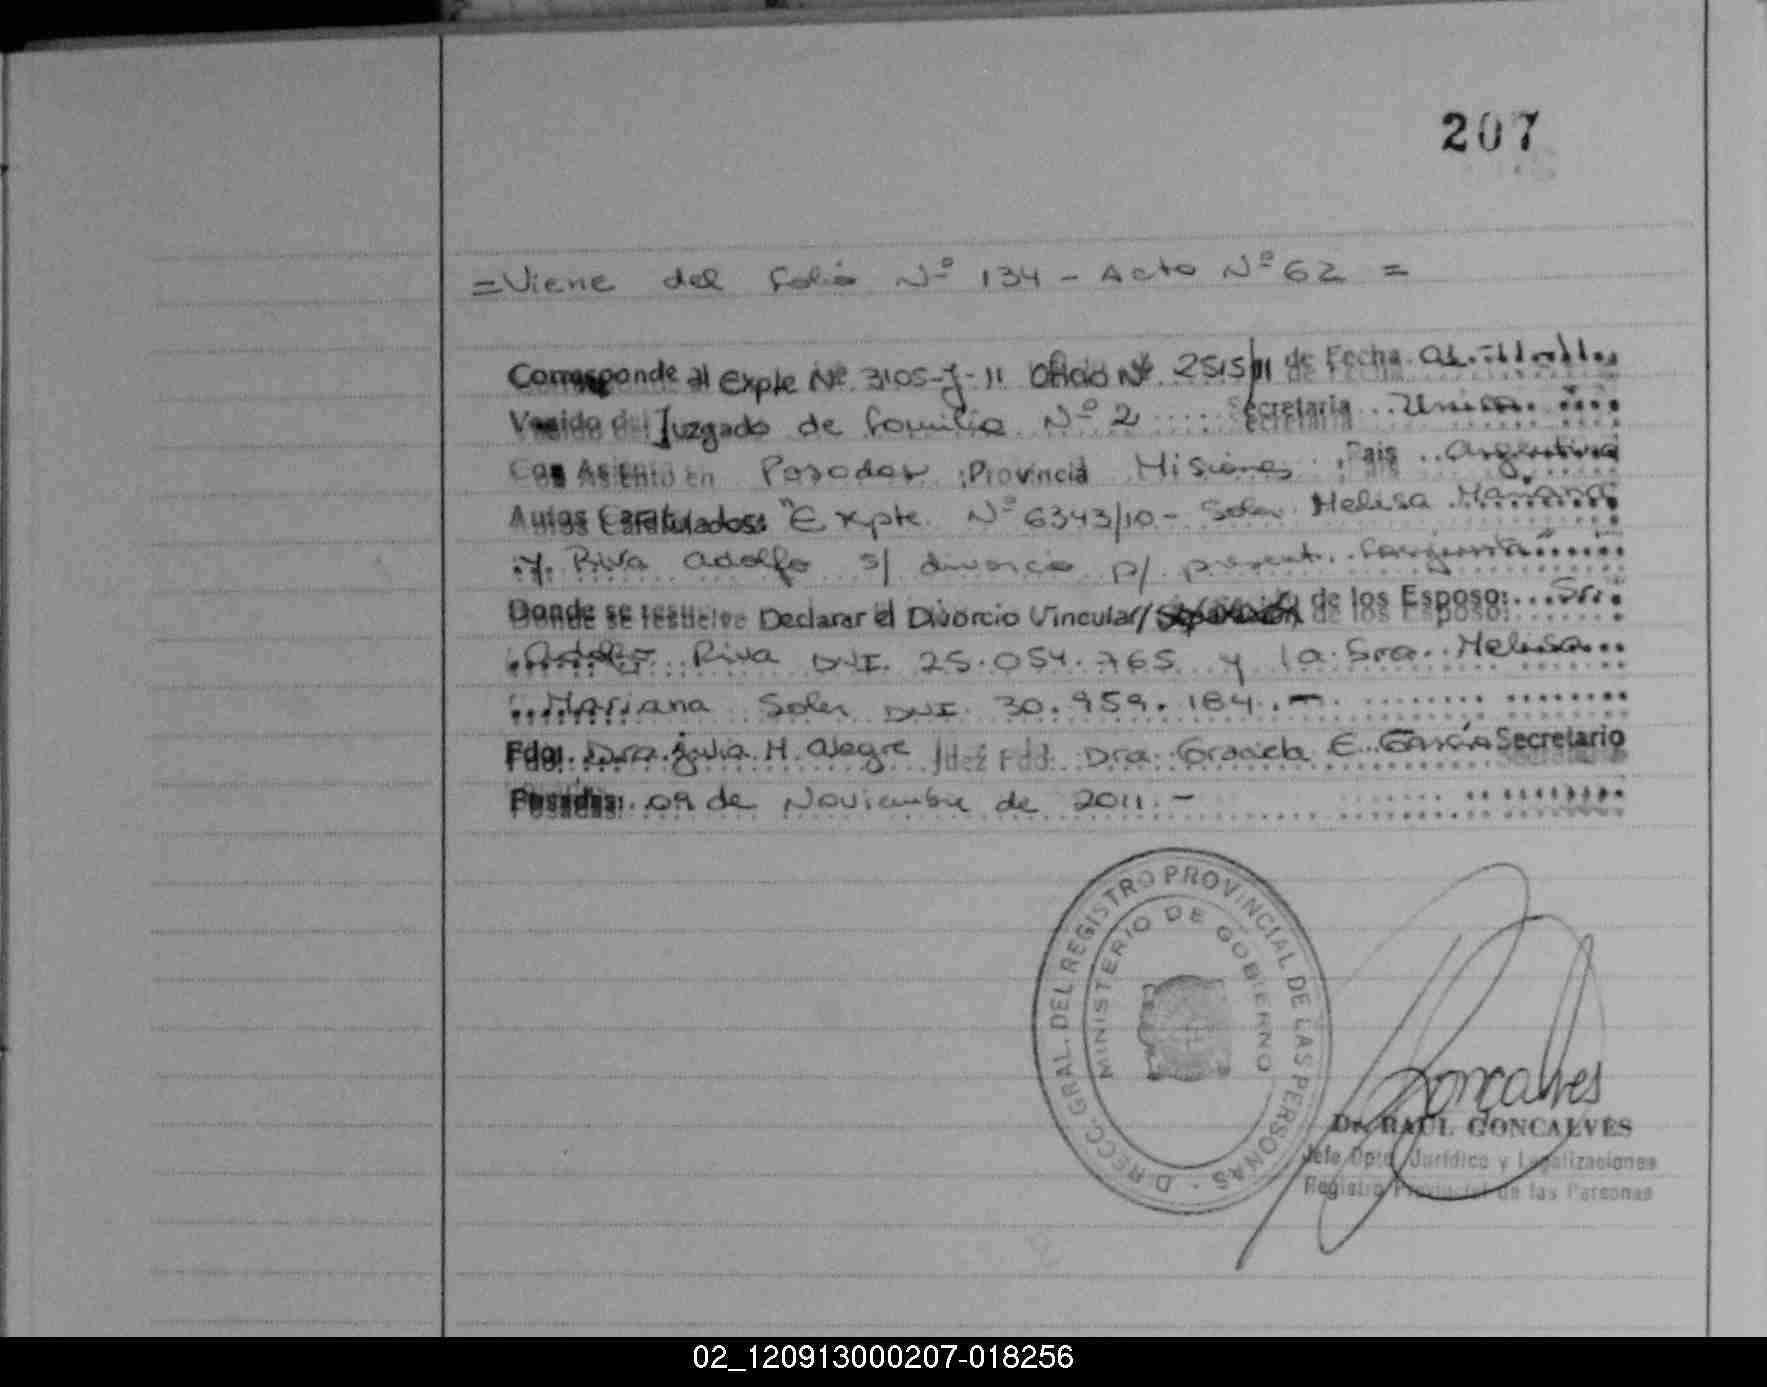 207
= Viene del folio Nº 134 - Acta Nº 62 =
Corresponde al Expte Nº 3105-J-11 Oficio Nº 2515/11 de Fecha 01-11-11
Venido del Juzgado de familia Nº 2 Secretaria Unica
Con Asiento en Posadas Provincia Misiones País Argentina
Autos Caratulados: "Expte Nº 6343/10 - Soler Melisa Mariana
y Riva Adolfo s/ divorcio p/ present. conjunta"
Donde se resuelve Declarar el Divorcio Vincular/ de los Esposo: Sr.
Adolfo Riva DNI. 25.054.765 y la Sra. Melisa
Mariana Soler DNI 30.959.184.-
Fdo. Dra. Julia H. Alegre Juez Fdo. Dra. Graciela E. García Secretario
Posadas: 09 de Noviembre de 2011.-
DIRECC. GRAL. DEL REGISTRO PROVINCIAL DE LAS PERSONAS -
MINISTERIO DE GOBIERNO
Goncalves
Dr. RAUL GONCALVES
Jefe Dpto. Jurídico y Legalizaciones
Registro Provincial de las Personas
02_120913000207-018256